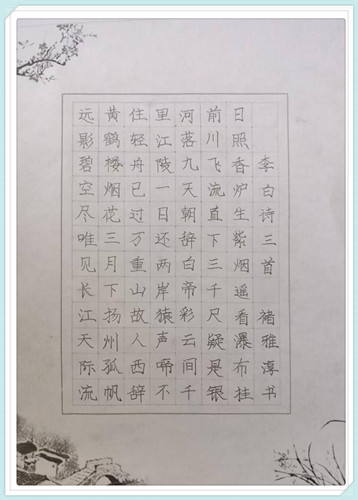 李白诗三首 褚雅淳书
日照香炉生紫烟遥看瀑布挂
前川飞流直下三千尺疑是银
河落九天朝辞白帝彩云间千
里江陵一日还两岸猿声啼不
住轻舟已过万重山故人西辞
黄鹤楼烟花三月下扬州孤帆
远影碧空尽唯见长江天际流